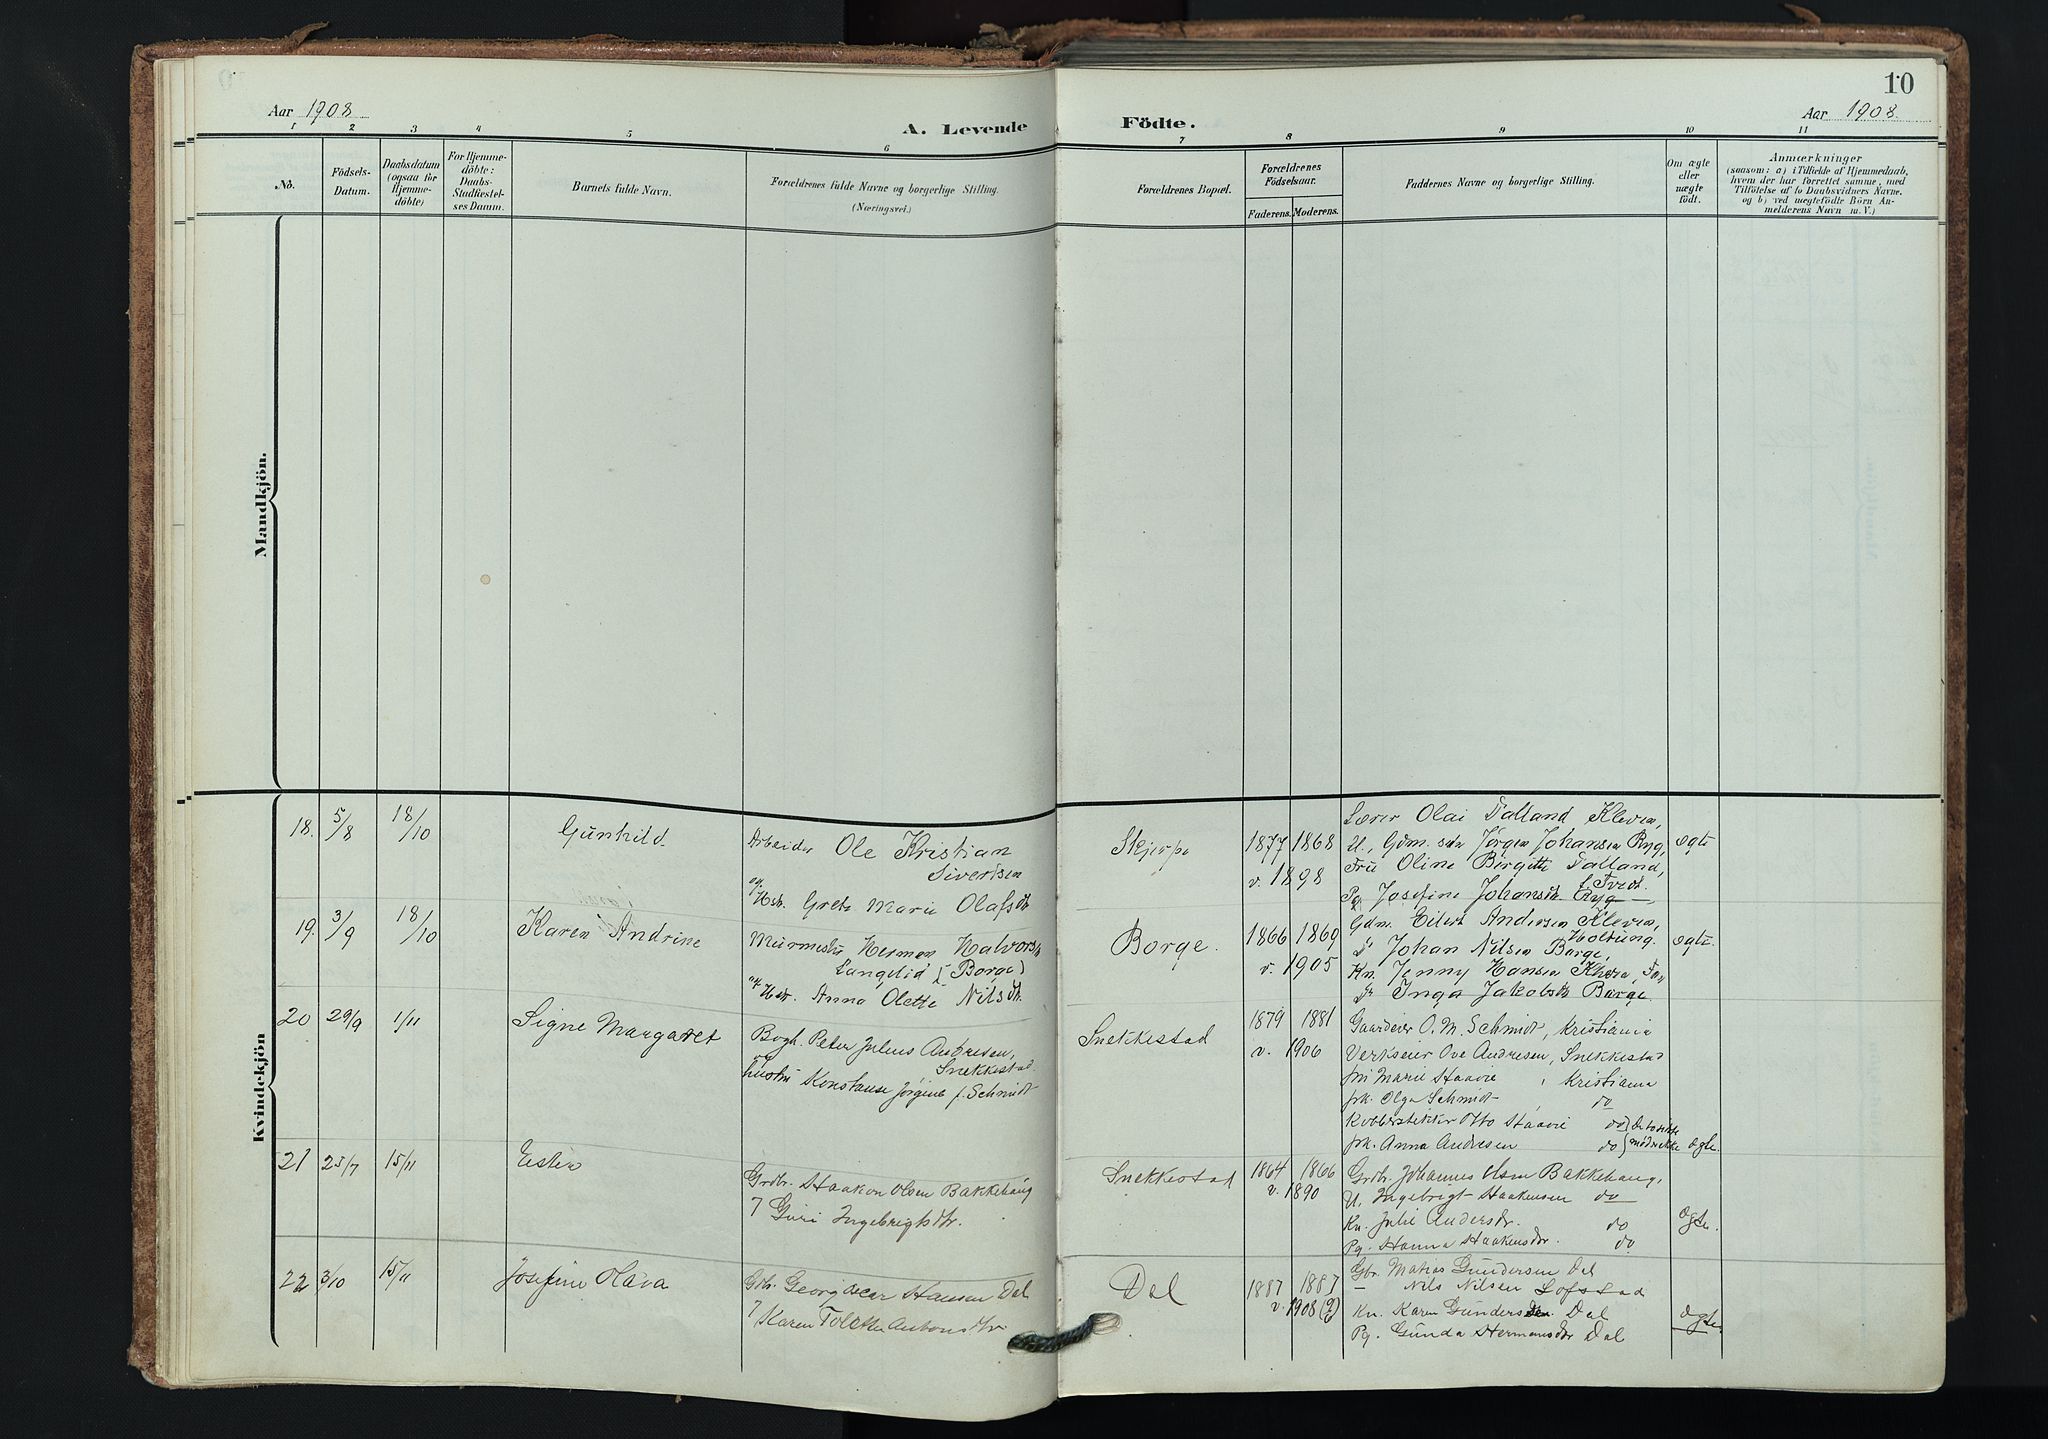 10
Aar 1908
A. Levende
Födte.
Aar 1908.
1 2 3 4 5 6 7 8 9 10 11
No.
Födsels-
Datum.
Daabsdatum
(ogsaa for
Hjemme-
döbte)
For Hjemme-
döbte:
Daabs-
Stadfæstel-
ses Datum.
Barnets fulde Navn.
Forældrenes fulde Navne og borgerlige Stilling.
(Næringsvei.)
Forældrenes Bopæl.
Forældrenes
Födselsaar.
Faderens. Moderens.
Faddernes Navne og borgerlige Stilling.
Om ægte
eller
uægte
födt.
Anmærkninger
(saasom: a) i Tilfælde af Hjemmedaab,
hvem der har forrettet samme, med
Tilföielse af to Daabsvidners Navne.
og b) ved uægtefödte Börn An-
melderens Navn m. V.)
Mandkjön.
Kvindekjön
18. 5/8 18/10 Gunhild.
Arbeider Ole Kristian
Sivertsen
og Hstr. Grete Marie Olafsdtr
Skjerpe
1877 1868
v. 1898
Lærer Olai Talland Kleven,
U., Gdm. søn Jørgen Johansen Ryg,
Fru Oline Birgitte Talland,
f. Tvedt.
Pg. Josefine Johansdtr. Ryg
ægte
19. 3/9 18/10 Karen Andrine
Murmester Herman Halvorsen
Langelid (Borge)
og Hstr. Anna Olette Nilsdtr.
Borge.
1866 1869
v. 1905
Gdm. Eilert Andersen Kleven,
Holtung.
Johan Nilsen Borge,
Kn. Jenny Hansen
Inga Jakobsdtr Borge.
ægte.
20 29/9 1/11 Signe Margaret
Bogh. Peter Julius Andresen,
Snekkestad.
og hustru Konstanse Jørgine f. Schmidt
Snekkestad
1879 1881
v. 1906
Gaardeier O. M. Schmidt, Kristiania
Verkseier Ove Andresen, Snekkestad
fru Marie Staavie, Kristiania
frk. Olga Schmidt do
Kobberstikker Otto Staavie do
frk. Anna Andresen do
de to sidste
mødte ikke
ægte.
21 25/7 15/11 Ester
Grdbr. Haakon Olsen Bakkehaug
7 Guri Ingebrigtsdtr.
Snekkestad
1864 1866
v. 1890
Grdb. Johannes Olsen Bakkehaug,
U. Ingebrigt Haakensen do
Kn. Julie Andersdtr. do
Pg. Hanna Haakensdtr. do
ægte.
22 3/10 15/11 Josefine Olava
Grbr. Georg Oscar Hansen Dal
7 Karen Tolette Antonsdtr
Dal
1887 1887
v. 1908 (9)
Gbr. Matias Gundersen Dal
— Nils Nilsen Lofstad
Kn. Karen Gundersen Dal
Pg. Gunda Hermansdtr Dal
ægte